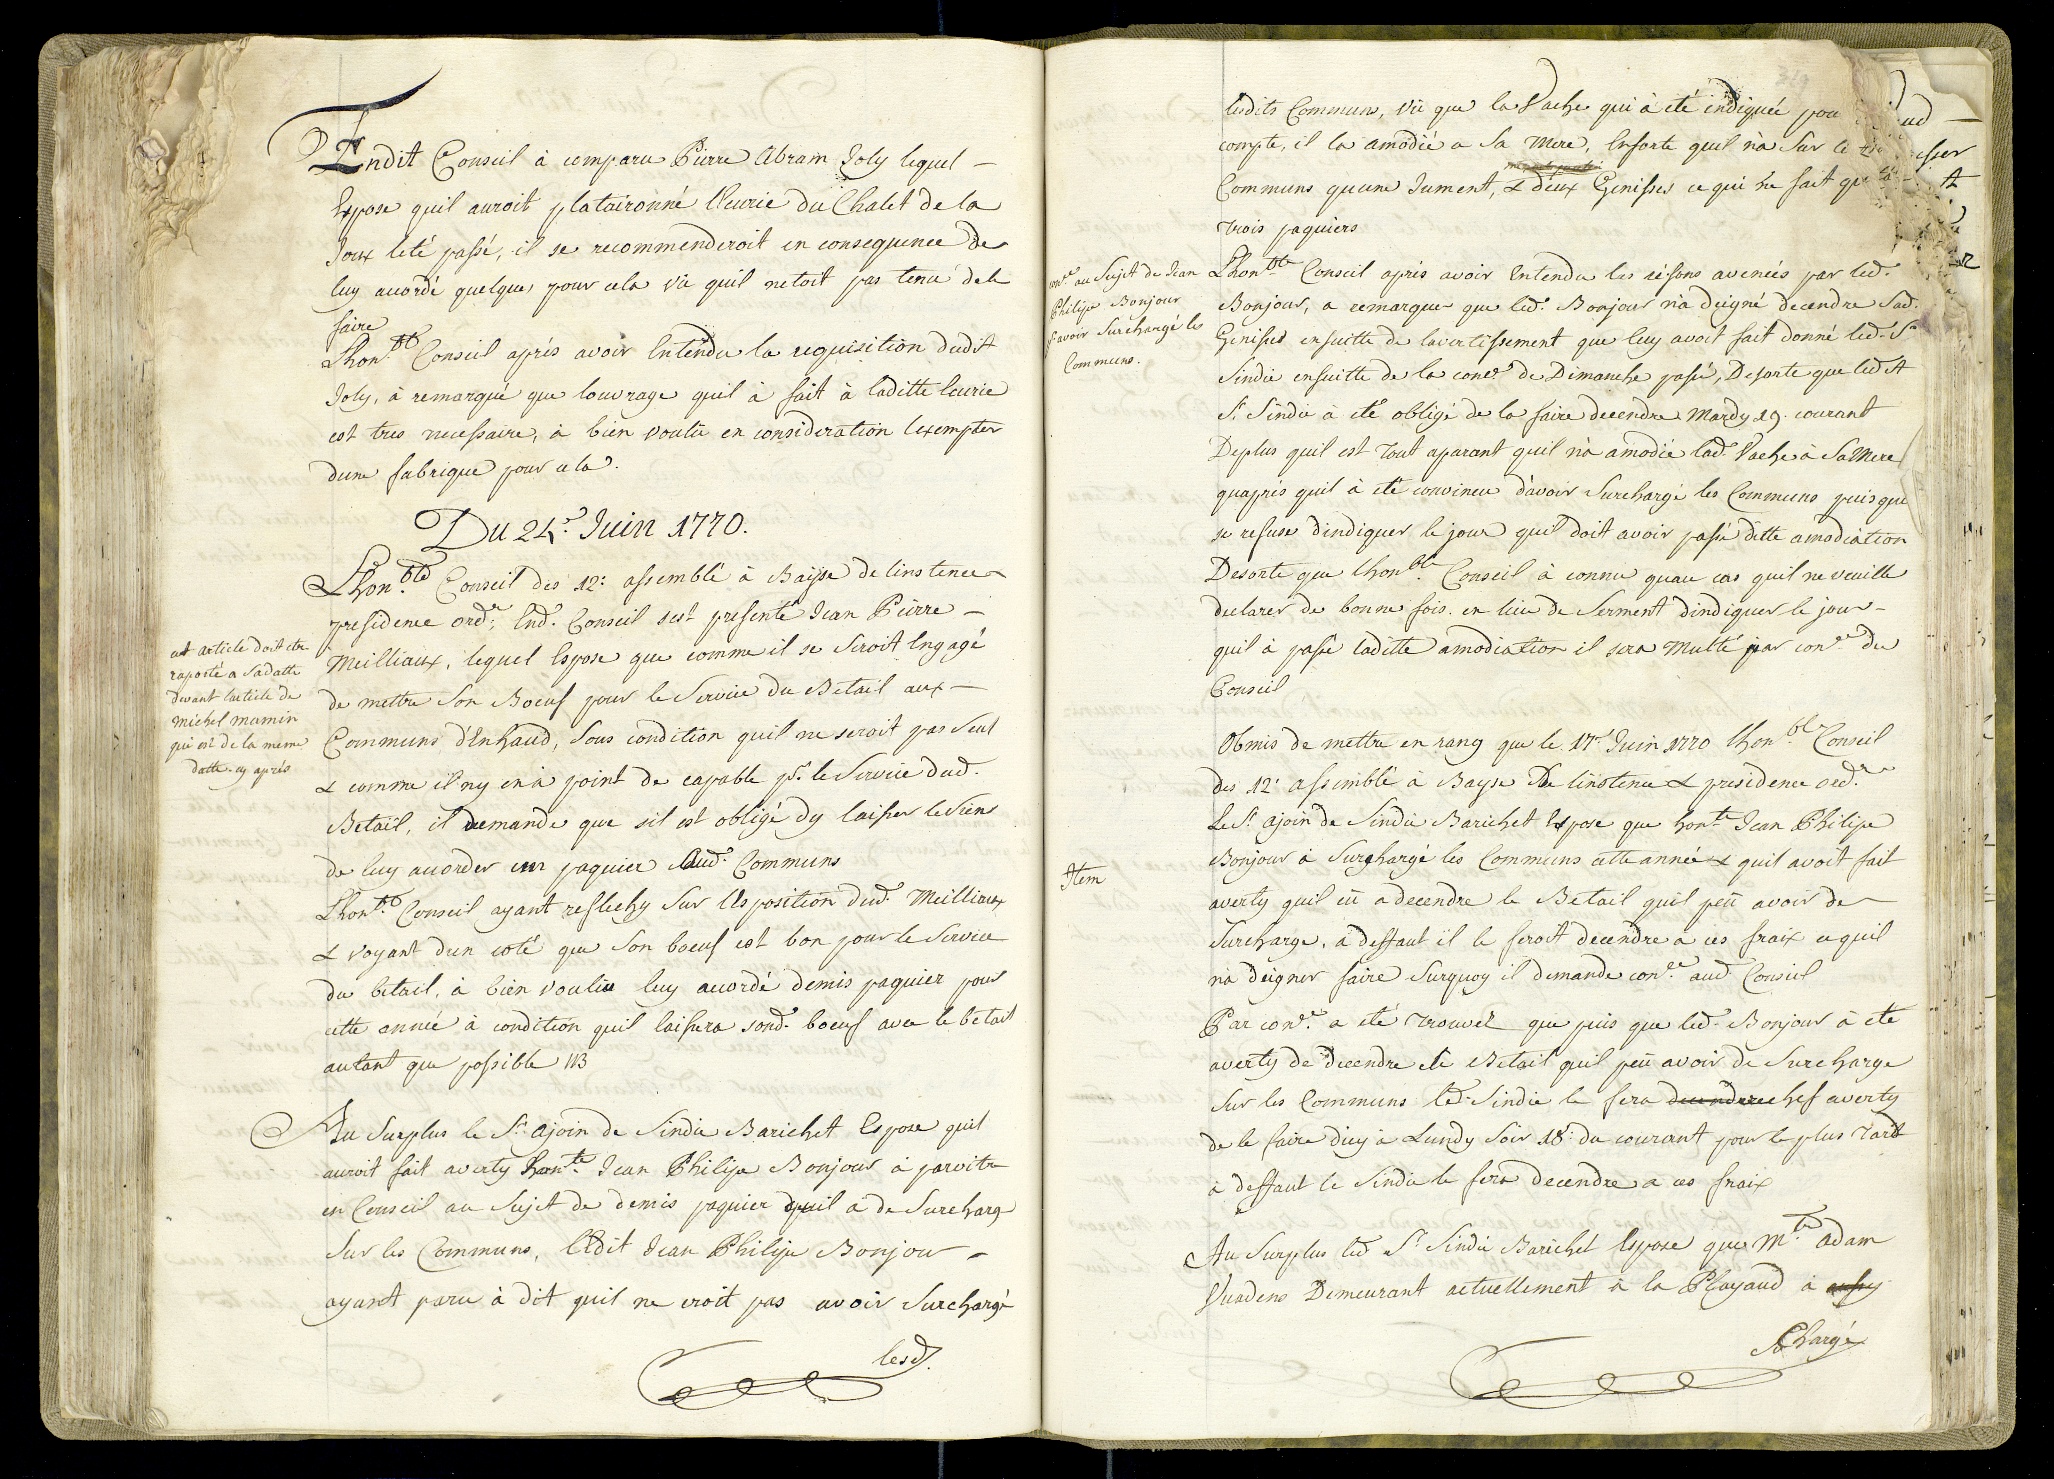 Endit Conseil à comparu Pierre Abram Joly lequel
Expose quil auroit plataronné l'Eurie du Chalet de la
Joux lété passé, il se recommenderoit en consequence de
luy acordé quelque pour cela vû quil netoit pas tenu dele
faire
Lhon.ble Conseil après avoir Entendu la requisition dudit
Joly, à remarqué que louvrage quil à fait à laditte leurie
est tres necessaire, à bien voulû en consideration lexempter
dune fabrique pour cela.
Du 24.e Juin 1770.
Lhon.ble Conseil des 12: assemblé à Bayse de linstence
presidence ord.re End. Conseil sest presenté Jean Pierre
Meilliaux, lequel Expose que comme il se seroit Engagé
de mettre Son Boeuf pour le Service du Betail aux
Communs d'Enhaud, Sous condition quil ne seroit pas Seul
& comme il ny en à point de capable pr. le Service dud.
Betail, il demande que sil est obligé dy laisser le Sien
de luy acorder un paquier Aud. Communs
Lhon.ble Conseil ayant reflechy Sur l'Exposition dud. Meilliaux
& voyant dun coté que Son boeuf est bon pour le Service
du betail, à bien voulu luy acordé demis paquier pour
cette année à condition quil laissera sond. boeuf avec le betail
autant que possible NB
cet article doit etre
raporté a Sadatte
devant larticle de
michel mamin
qui est de la meme
datte cy après
Au Surplus le Sr. ajoin de Sindic Barichet Expose quil
auroit fait averty hon.te Jean Philipe Bonjour à paroitre
en Conseil au Sujet de demis paquier quil a de Surcharge
Sur les Communs, Ledit Jean Philipe Bonjour
ayant paru à dit quil ne croit pas avoir Surchargé
lesd.
lesdits Communs, vû que la Vache qui à été indiquée pour
compte, il la amodié a Sa Mere, Ensorte quil n'à Sur le
Communs quune Jument, & deux Genisses ce qui ne fait que
trois paquiers
con.ce au Sujet de Jean
Philipe Bonjour
d'avoir Surchargé les
Communs.
Lhon.ble Conseil après avoir Entendu les résons avencés par led.
Bonjour, a remarque que led. Bonjour n'a deigné decendre Sad.
Genisse ensuitte de lavertissement que luy avoit fait donné led. Sr
Sindic ensuitte de la con.ce de Dimanche passé, Desorte que ledit
Sr. Sindic à eté obligé de la faire decendre Mardy 19. courant
Deplus quil est tout aparant quil n'à amodié lad. Vache à Sa Mere
quaprés quil à eté convincu d'avoir Surchargé les Communs puisque
se refuse dindiquer le jour quil doit avoir passé ditte amodiation
Desorte que lhon.ble Conseil à connu quau cas quil ne veuille
declarer de bonne fois en lieu de Serment dindiquer le jour
quil à passé laditte amodiation il sera Multé par con.ce du
Conseil
Obmis de mettre en rang que le 17.e Juin 1770 lhon.ble Conseil
des 12: assemblé à Bayse De linstence & presidence ord.re
Le Sr. ajoin de Sindic Barichet Expose que hon.te Jean Philipe
Bonjour à Surchargé les Communs cette année & quil avoit fait
Item
averty quil eû a decendre le Betail quil peû avoir de
Surcharge, à deffaut il le feroit decendre a ces fraix ce quil
n'à deigner faire Surquoy il demande con.ce aud. Conseil
Par con.ce a eté trouvez que puis que led. Bonjour à eté
averty de decendre le Betail quil peû avoir de Surcharge
Sur les Communs led. Sindic le fera derechef averty
de le faire dicy à Lundy Soir 18.e du courant pour le plus tard
à deffaut le Sindic le fera decendre a ces fraix
Au Surplus led. Sr. Sindic Barichet Expose que M.tre Adam
Vuadens Demeurant actuellement à la Playaud à
Chargé